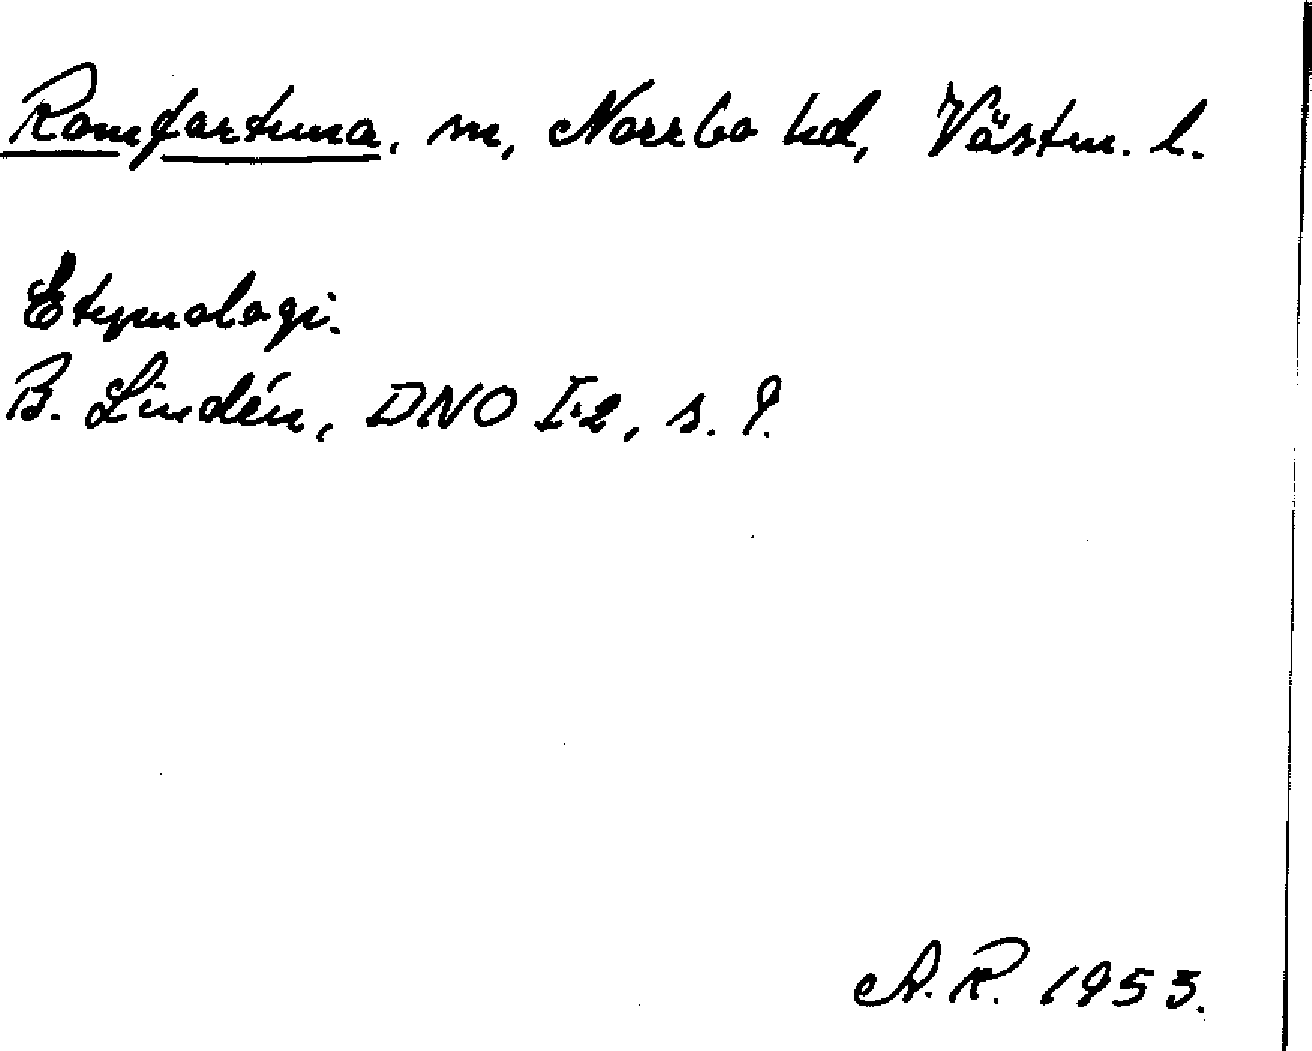 Romfartuna, sn, Norrbo hd, Västm. l.
Etymologi.
B. Lindén, DNO I-2, s. 9.
A.R. 1953.